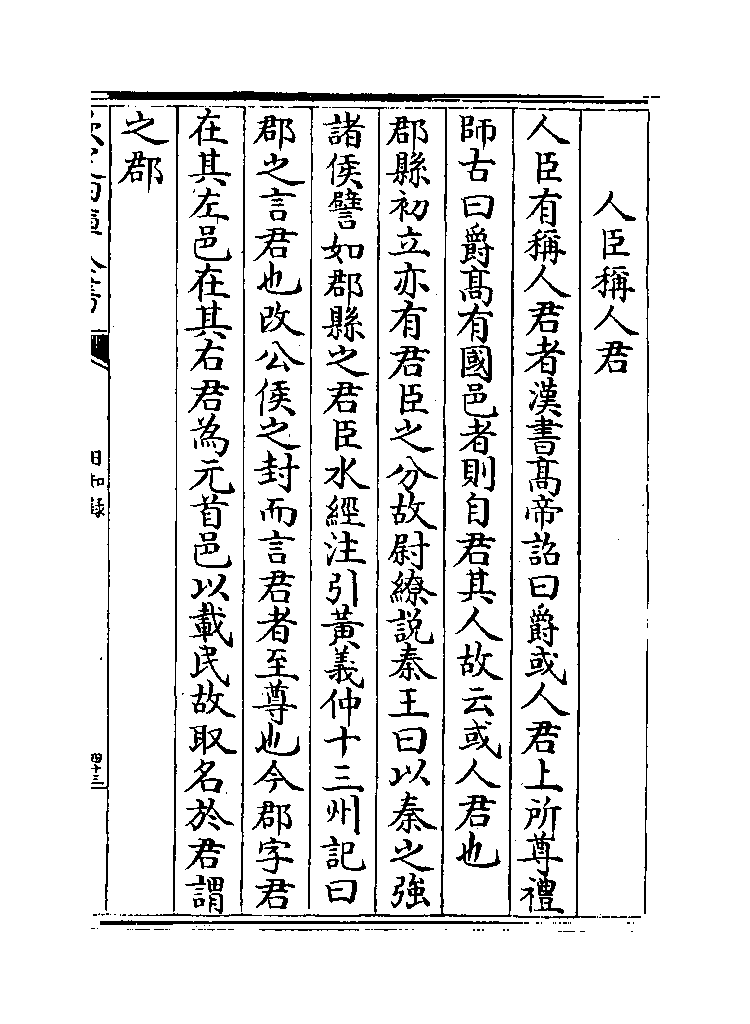 人臣稱人君
人臣有稱人君者漢書髙帝詔曰爵或人君上所尊禮
師古曰爵髙有國邑者則自君其人故云或人君也
郡縣初立亦有君臣之分故尉繚説秦王曰以秦之強
諸侯譬如郡縣之君臣水經注引黃義仲十三州記曰
郡之言君也改公侯之封而言君者至尊也今郡字君
在其左邑在其右君為元首邑以載民故取名於君謂
之郡
日知錄
四十三